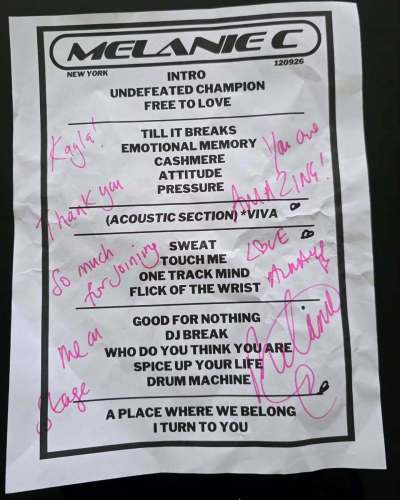 MELANIE C
NEW YORK
120926
INTRO
UNDEFEATED CHAMPION
FREE TO LOVE
TILL IT BREAKS
EMOTIONAL MEMORY
CASHMERE
ATTITUDE
PRESSURE
(ACOUSTIC SECTION) *VIVA
SWEAT
TOUCH ME
ONE TRACK MIND
FLICK OF THE WRIST
GOOD FOR NOTHING
DJ BREAK
WHO DO YOU THINK YOU ARE
SPICE UP YOUR LIFE
DRUM MACHINE
A PLACE WHERE WE BELONG
I TURN TO YOU
Kayla!
Thank you
so much
for joining
me on
stage
You are
AMAZING!
LOVE
ALWAYS
Melanie C